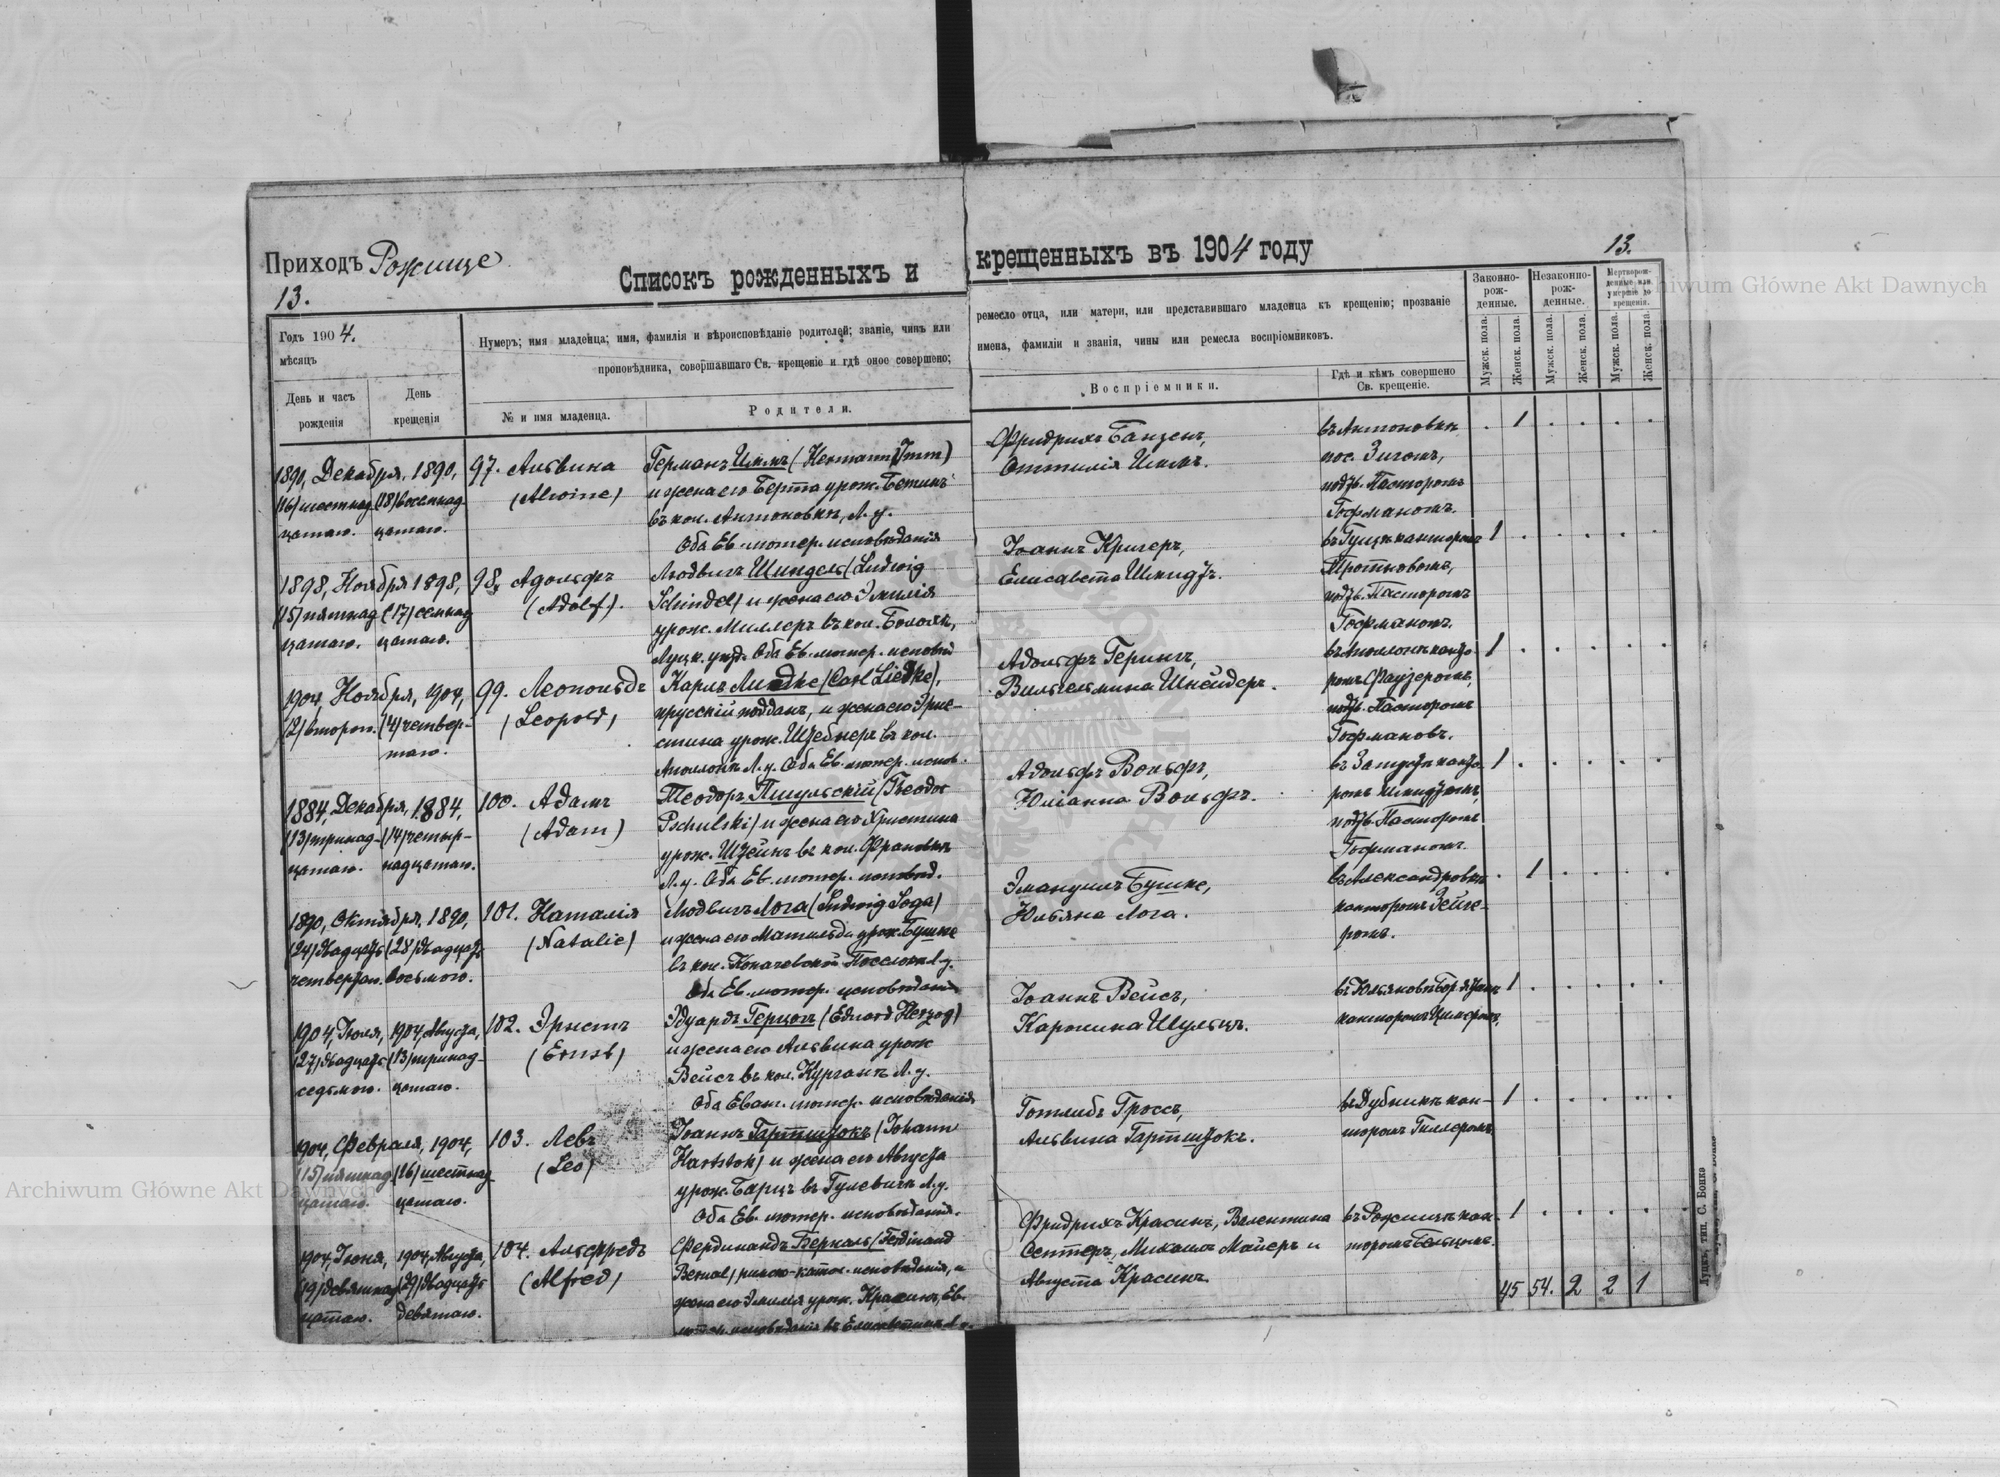 Приходъ Рожище
13.
Списокъ рожденныхъ и крещенныхъ въ 1904 году
13.
Годъ 1904.
мѣсяцъ
День и часъ рожденія
День крещенія
Нумеръ; имя младенца; имя, фамилія и вѣроисповѣданіе родителей; званіе, чинъ или
проповѣдника, совершавшаго Св. крещеніе и гдѣ оное совершено;
№ и имя младенца.
Родители.
ремесло отца, или матери, или представившаго младенца къ крещенію; прозваніе
имена, фамиліи и званія, чины или ремесла воспріомниковъ.
Воспріемники.
Гдѣ и кѣмъ совершено
Св. крещеніе.
Законно-
рож-
денные.
Незаконно-
рож-
денные.
Мертворож-
денные или
умершіе до
крещенія.
Мужск. пола.
Женск. пола.
Мужск. пола.
Женск. пола.
Мужск. пола.
Женск. пола.
1890, Декабря, 1890,
(16) шестнад- (18) восемнад-
цатаго. цатаго.
97. Альвина
(Alwine)
Германъ Иммъ (Hermann Imm)
и жена его Берта урож. Бетинъ
въ кол. Антоновкѣ, Л. у.
Оба Ев. лютер. исповѣданія
Фридрихъ Банзенъ,
Оттилія Иммъ.
въ Антоновкѣ
пос. Зигомъ,
подтв. Пасторомъ
Гофманомъ.
1
1898, Ноября 1898,
(15) пятнад- (17) семнад-
цатаго. цатаго.
98. Адольфъ
(Adolf).
Людвигъ Шиндель (Ludwig
Schindel) и жена его Эмилія
урож. Миллеръ въ кол. Болохѣ,
Луцк. уѣзд. Оба Ев. лютер. исповѣд
Іоаннъ Кригеръ,
Елисавета Шмидтъ.
подтв. Пасторомъ
Гофманомъ.
1
1904, Ноября, 1904,
(2) второг. (4) четвер-
таго.
99. Леопольдъ
(Leopold)
Карлъ Лидке (Carl Liedke),
прусскій поддан., и жена его Эрне-
стина урож. Штебнеръ въ кол.
Аполонкѣ Л. у. Оба Ев. лютер. испов.
Адольфъ Герингъ,
Вильгельмина Шнейдеръ.
подтв. Пасторомъ
Гофмановъ.
1
1884, Декабря, 1884,
(13) тринад- (14) четыр-
цатаго. надцатаго.
100. Адамъ
(Adam)
Теодоръ Пшульскій (Theodor
Pschulski) и жена его Христина
урож. Штейнъ въ кол. Франовкѣ
Л. у. Оба Ев. лютер. исповѣд.
Адольфъ Вольфъ,
Юліанна Вольфъ.
подтв. Пасторомъ
Гофманомъ.
1
1890, Октября, 1890,
(24) двадцать (28) двадцать
четвертаго. восьмого.
101. Наталія
(Natalie)
Людвигъ Лога (Ludwig Loga)
и жена его Матильда урож. Бушке
Оба Ев. лютер. исповѣданія
Эмануилъ Бушке,
Юльяна Лога.
въ Александровкѣ
канторомъ Зейге-
ромъ.
1
1904, Іюля, 1904, Августа,
(27) двадцать (13) тринад-
седьмого. цатаго.
102. Эрнстъ
(Ernst)
Эдуардъ Герцогъ (Eduard Herzog)
и жена его Альвина урож
Вейсъ въ кол. Курганѣ Л. у.
Оба Еванг. лютер. исповѣданія
Іоаннъ Вейсъ,
Каролина Шульцъ.
1
1904, Февраля, 1904,
(15) пятнад- (16) шестнад-
цатаго. цатаго.
103. Левъ
(Leo)
Іоаннъ Гартштокъ (Johann
Hartstok) и жена его Августа
урож. Барцъ въ Гулевичѣ Л. у.
Оба Ев. лютер. исповѣданія.
Готлибъ Гроссъ,
Альвина Гартштокъ.
въ Дубникѣ кан-
торомъ Гиллеромъ
1
1904, Іюня, 1904, Августа,
(19) девятнад- (29) двадцать
цатаго. девятаго.
104. Альфредъ
(Alfred)
Фердинандъ Берналь (Ferdinand
Bernal) римско-катол. исповѣданія, и
жена его Эмилія урож. Красинъ, Ев.
лютер. исповѣданія въ Елисаветинѣ Л. у.
Фридрихъ Красинъ, Валентина
Сентеръ, Михаилъ Майеръ и
Августа Красинъ
въ Рожищѣ кан-
торомъ Бельцомъ.
1
45 54. 2 2 1
Луцкъ, тип. С. Бокка
Archiwum Główne Akt Dawnych
Archiwum Główne Akt Dawnych